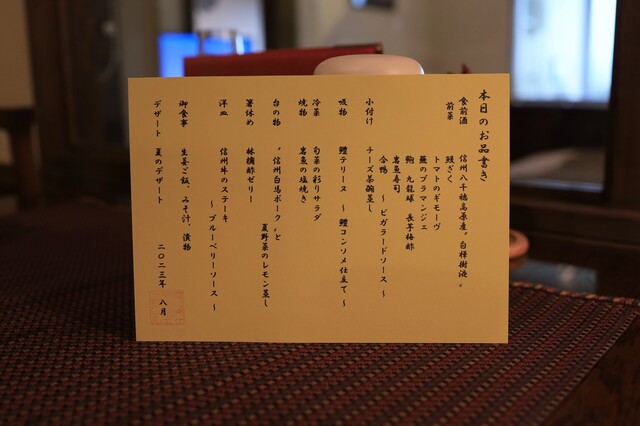 本日のお品書き
食前酒　信州八千穂高原産〝白樺樹液〟
前菜　鰻ざく
トマトのギモーヴ
蕪のブラマンジェ
鮑　九龍球　長芋梅酢
岩魚寿司
合鴨　～ビガラードソース～
小付け　チーズ茶碗蒸し
吸物　鱧テリーヌ　～鱧コンソメ仕立て～
冷菜　旬菜の彩りサラダ
焼物　岩魚の塩焼き
台の物　〝信州白馬ポーク〟と
夏野菜のレモン蒸し
箸休め　林檎酢ゼリー
洋皿　信州牛のステーキ
～ブルーベリーソース～
御食事　生姜ご飯、みそ汁、漬物
デザート　夏のデザート
二〇二三年　八月